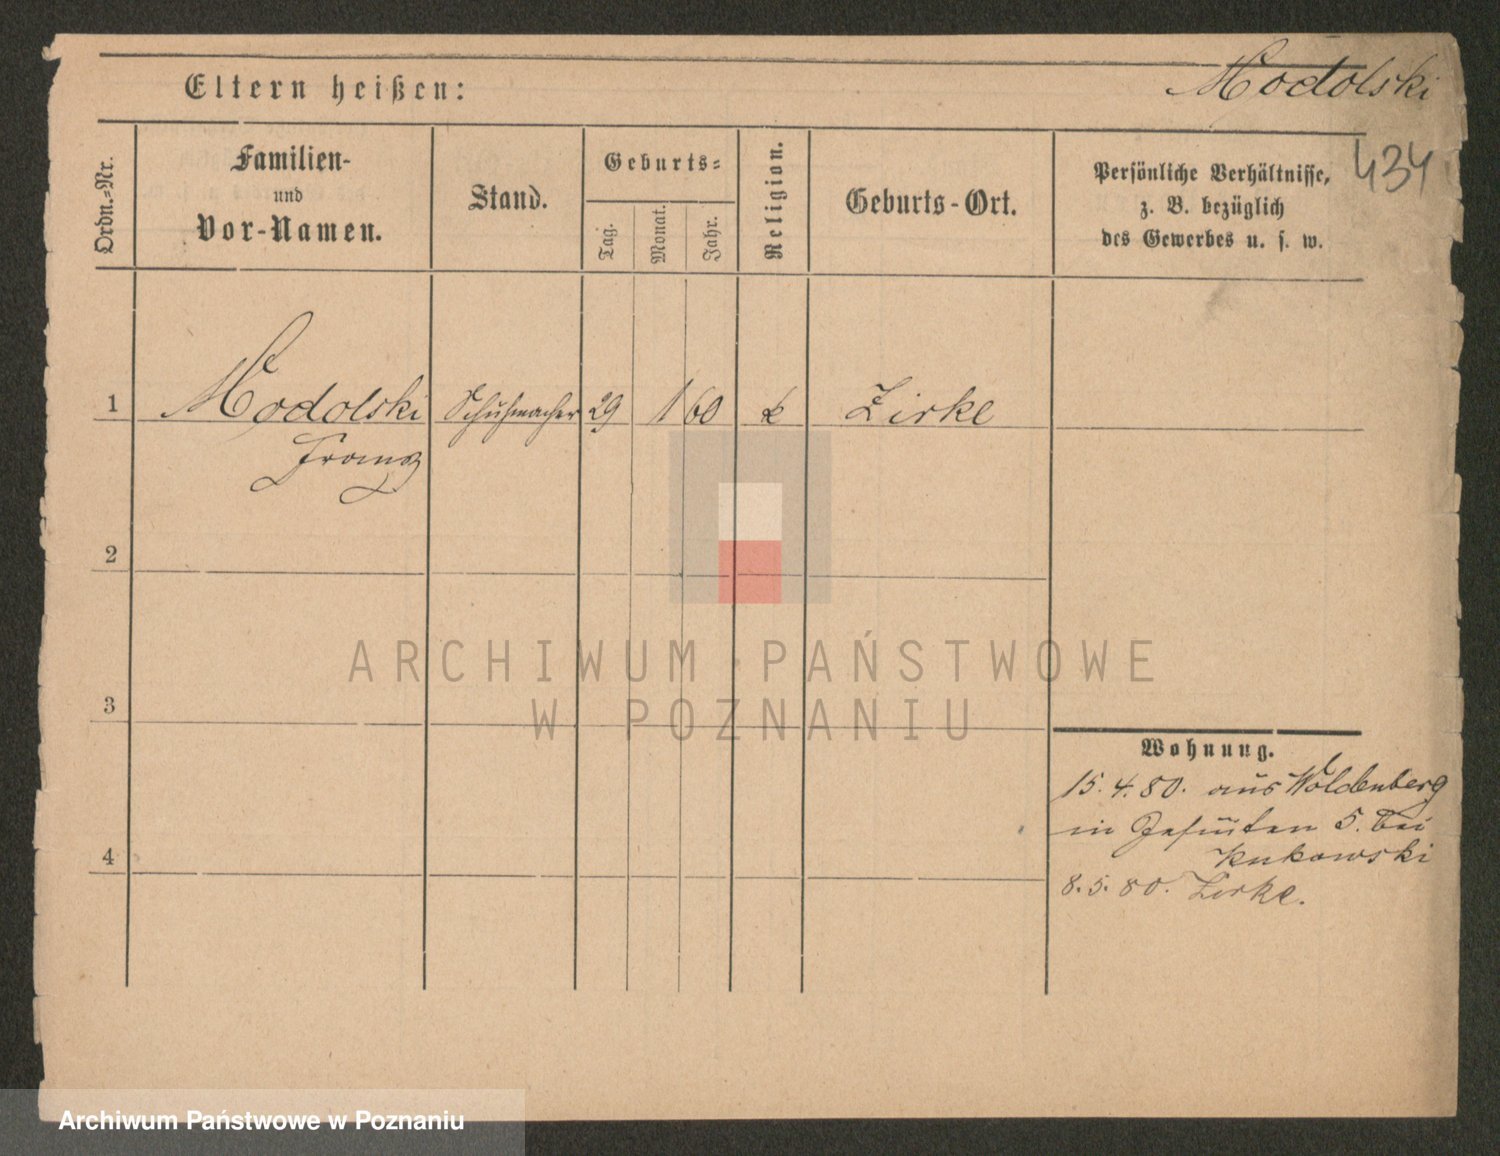 Modolski
Eltern heißen:
434
Ordn.-Nr.
Familien-
und
Vor-Namen.
Stand.
Geburts-
Tag.
Monat.
Jahr.
Religion.
Geburts-Ort.
Persönliche Verhältnisse,
z. B. bezüglich
des Gewerbes u. s. w.
1 Modolski Schuhmacher 29 1 60 k Zirke
Franz
2
3
4
Wohnung.
15. 4. 80. aus Woldenberg
in Jesuiten 5. bei
Kukowski
8. 5. 80. Zirke.
ARCHIWUM PAŃSTWOWE
W POZNANIU
Archiwum Państwowe w Poznaniu